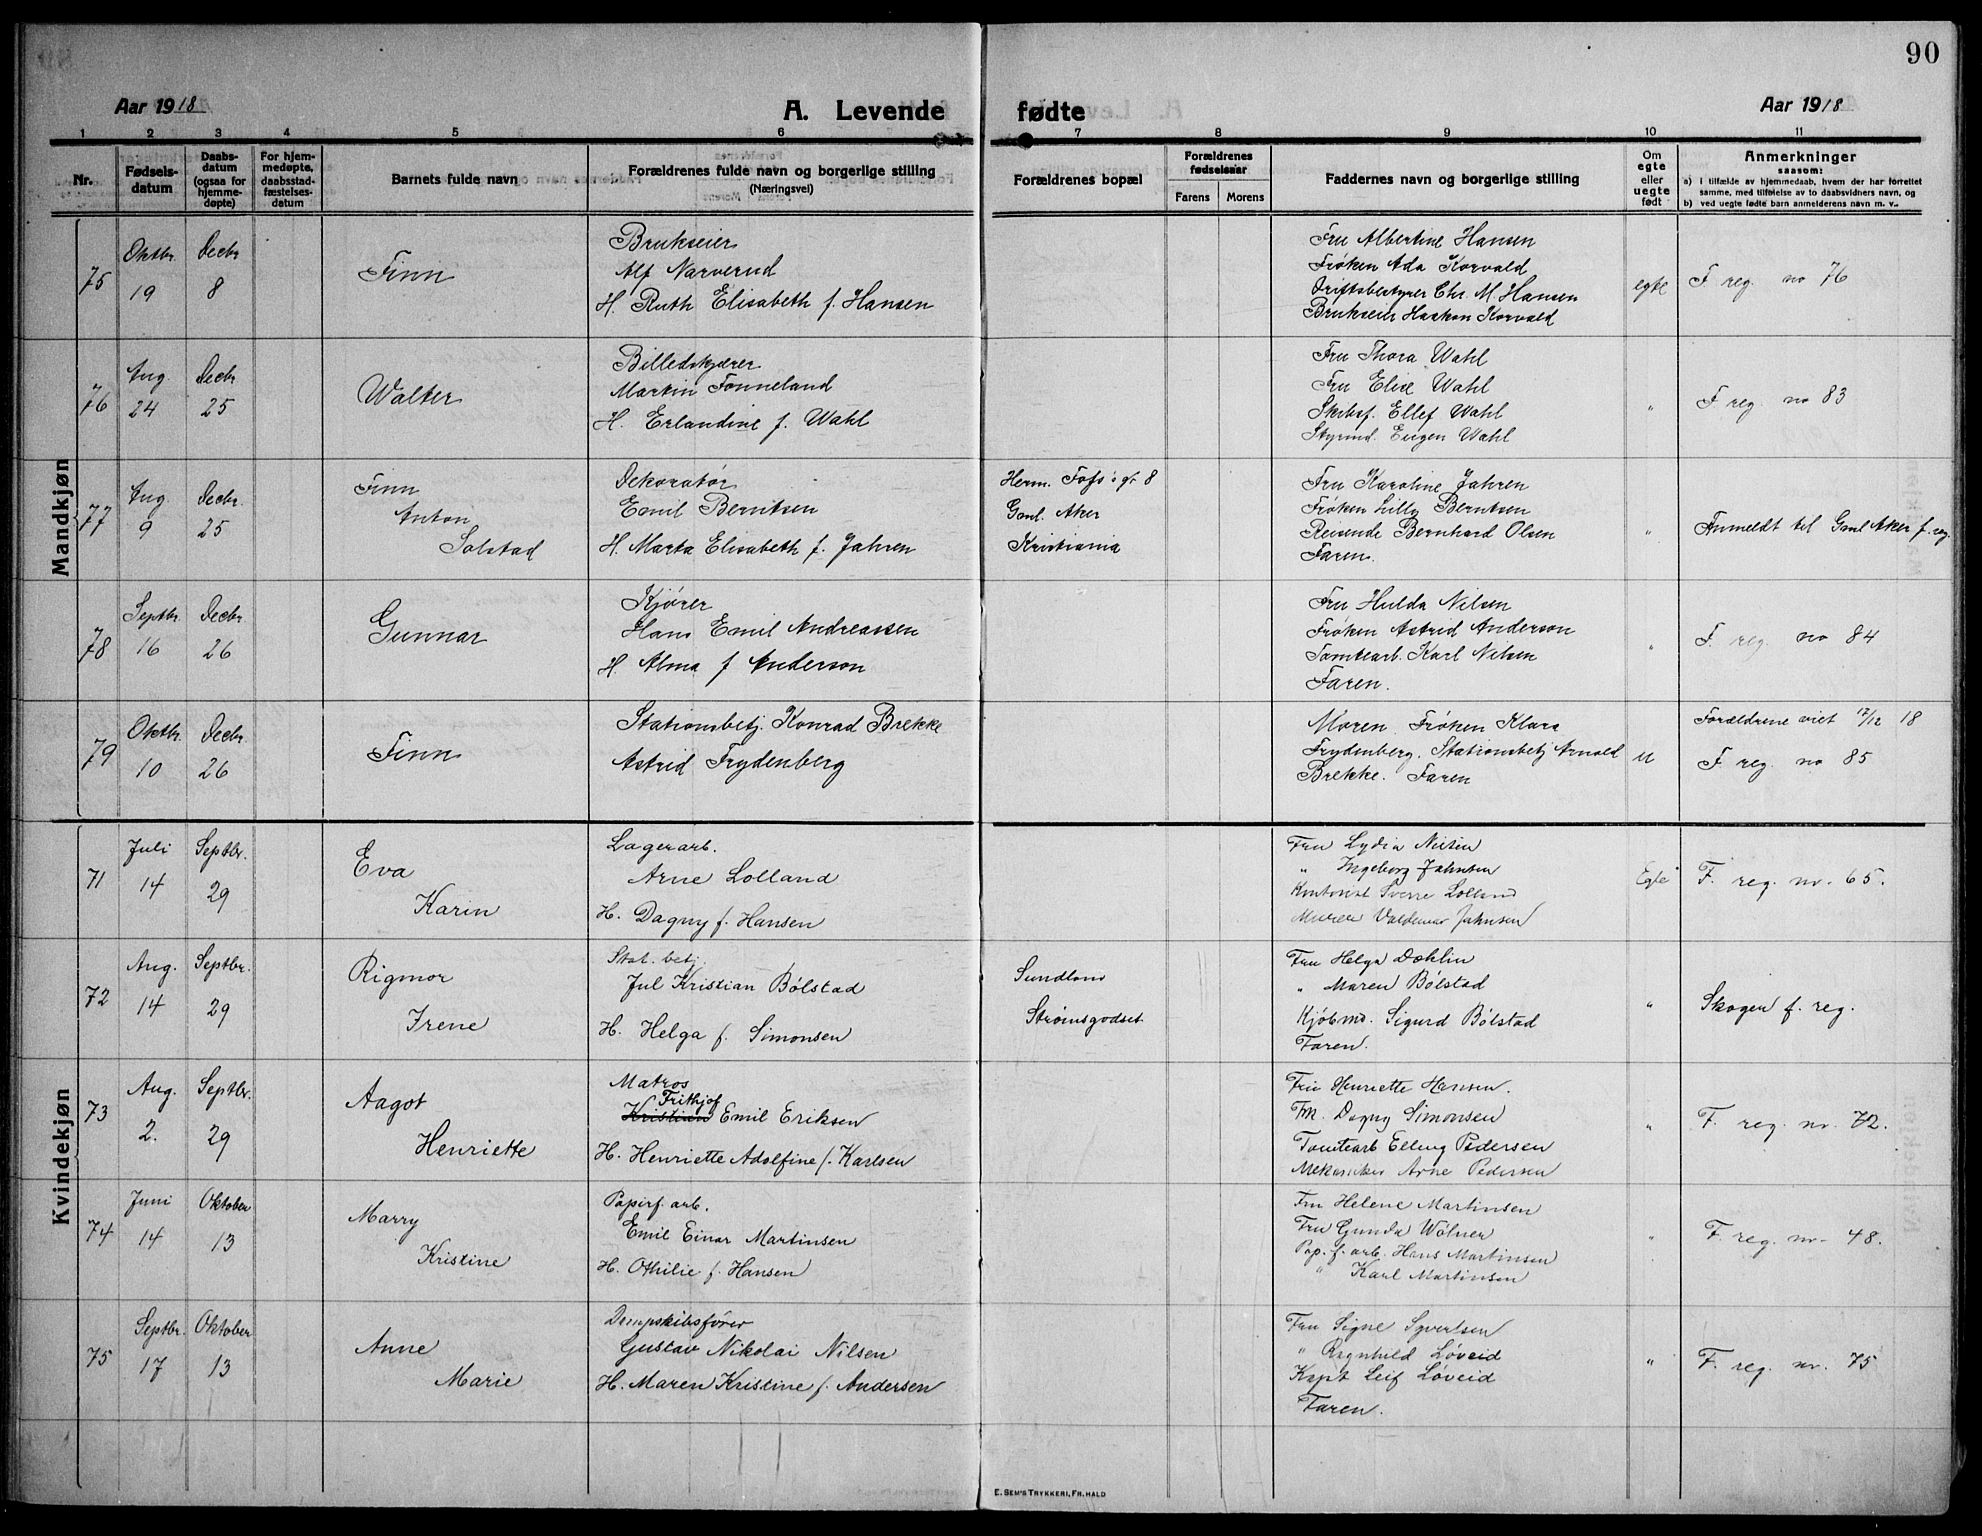 90
Aar 1918 A. Levende fødte Aar 1918
1 2 3 4 5 6 7 8 9 10 11
Nr.
Fødsels-
datum
Daabs-
datum
(ogsaa for
hjemme-
døpte)
For hjem-
medøpte,
daabsstad-
fæstelses-
datum
Barnets fulde navn
Forældrenes fulde navn og borgerlige stilling
(Næringsvei)
Forældrenes bopæl
Forældrenes
fødselsaar
Farens Morens
Faddernes navn og borgerlige stilling
Om
egte
eller
uegte
født
Anmerkninger
saasom:
a) I tilfælde av hjemmedaab, hvem der har forrettet
samme, med tilføielse av to daabsvidners navn, og
b) ved uegte fødte barn anmelderens navn m. v.
Mandkjøn
75
Oktbr.
19
Decbr
8
Finn
Brukseier
Alf Narverud
H. Ruth Elisabeth f. Hansen
Fru Albertine Hansen
Frøken Ada Korvald
Driftsbestyrer Chr. M. Hansen
Brukseier Haakon Korvald
egte
F. reg. no 76
76
Aug.
24
Decbr
25
Walter
Billedskjærer
Martin Fonneland
H. Erlandine f. Wahl
Fru Thora Wahl
Fru Elise Wahl
Skibsf. Ellef Wahl
Styrmd. Eugen Wahl
"
F reg. no 83
77
Aug.
9
Decbr.
25
Finn
Anton
Solstad
Dekoratør
Emil Berntsen
H. Marta Elisabeth f. Jahren
Herm. Foss's gt 8
Gml. Aker
Kristiania
Fru Karoline Jahren
Frøken Lilly Berntsen
Reisende Bernhard Olsen
Faren.
"
Anmeldt til Gml Aker f. reg.
78
Septbr.
16
Decbr
26
Gunnar
Kjører
Hans Emil Andreassen
H. Alma f Anderson
Fru Hulda Nilsen
Frøken Astrid Anderson
Tomtearb. Karl Nilsen
Faren.
"
F. reg no 84
79
Oktbr.
10
Decbr
26
Finn
Stationsbetj. Konrad Brekke
Astrid Frydenberg
Moren. Frøken Klara
Frydenberg. Stationsbetj Arnold
Brekke. Faren
u
Forældrene viet 17/12 18
F. reg. no 85
Kvindekjøn
71
Juli
14
Septbr.
29
Eva
Karin
Lagerarb.
Arne Lolland
H. Dagny f. Hansen
Fru Lydia Nilsen
" Ingeborg Jahnsen
Kontorist Sverre Lolland
Murer Valdemar Jahnsen
Egte
F. reg. nr. 65.
72
Aug.
14
Septbr.
29
Rigmor
Irene
Stat. betj.
Jul Kristian Bølstad
H. Helga f. Simonsen
Sundland
Strømsgodset
Fru Helga Dæhlin
" Maren Bølstad
Kjøbmd. Sigurd Bølstad
Faren.
"
Skoger f. reg.
73
Aug.
2.
Septbr.
29
Aagot
Henriette
Matros
Frithjof
Kristian Emil Eriksen
H. Henriette Adolfine f. Karlsen
Fru Henriette Hansen.
Fru. Dagny Simonsen
Tomtearb Elling Pedersen
Mekaniker Arne Pedersen
"
F. reg. nr. 72.
74
Juni
14
Oktober
13
Marry
Kristine
Papirf. arb.
Emil Einar Martinsen
H. Othilie f. Hansen
Fru Helene Martinsen
Fru Gunda Wølner
Pap. f. arb. Hans Martinsen
" Karl Martinsen
"
F. reg. nr. 48.
75
Septbr.
17
Oktober
13
Anne
Marie
Dampskibsfører
Gustav Nikolai Nilsen
H. Maren Kristine f. Andersen
Fru Signe Syvertsen
" Ragnhild Løveid
Kapt Leif Løveid
Faren.
"
F. reg. nr. 75
E. SEM'S TRYKKERI, FR.HALD